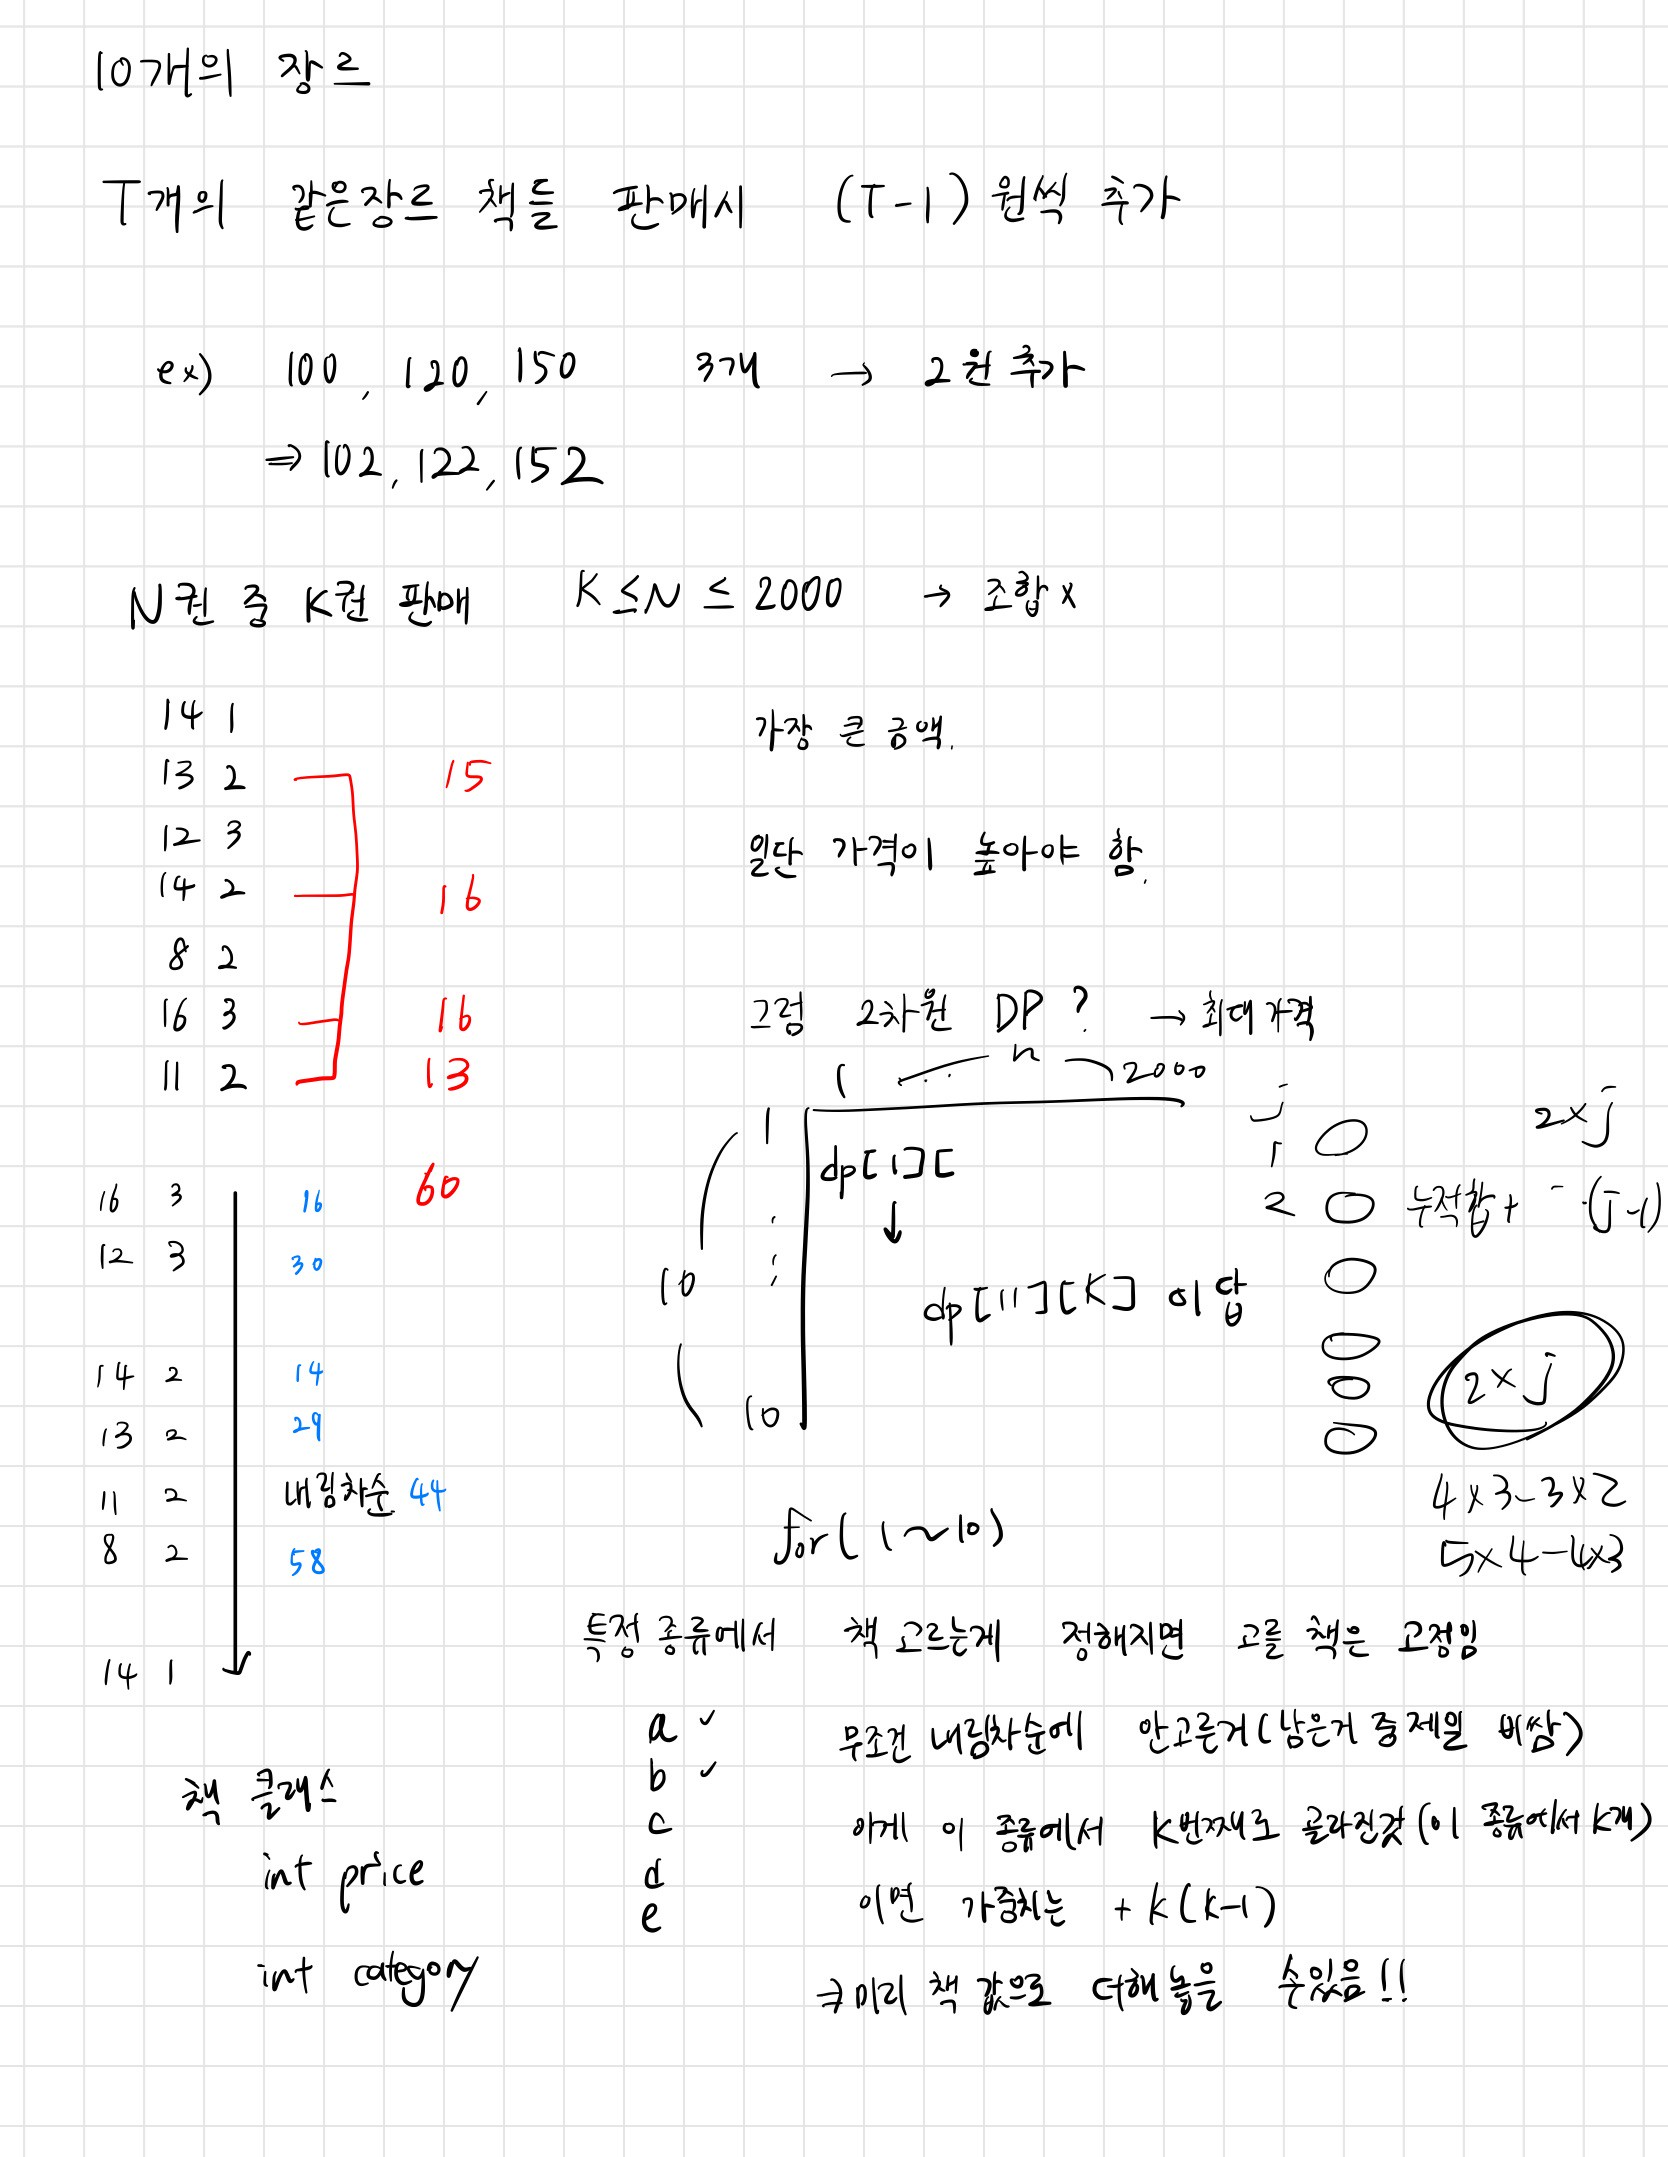 10개의 장르
T개의 같은장르 책들 판매시 (T-1)원씩 추가
ex) 100, 120, 150 3개 → 2원 추가
⇒ 102, 122, 152
N권 중 K권 판매 K ≤ N ≤ 2000 → 조합 x
14 1
13 2 15
12 3
14 2 16
8 2
16 3 16
11 2 13
60
16 3 16
12 3 30
14 2 14
13 2 29
11 2 내림차순 44
8 2 58
14 1
책 클래스
int price
int category
가장 큰 금액.
일단 가격이 높아야 함.
그럼 2차원 DP? → 최대 가격
1 ... n 2000
1
dp[1][
↓
10
dp[11][K] 이 답
10
j 2×j
1
2 누적합+ (j-1)
2×j
4×3-3×2
5×4-4×3
for( 1~10)
특정 종류에서 책 고르는게 정해지면 고를 책은 고정임
a ✓
b ✓
c
d
e
무조건 내림차순에 안고른거(남은거 중 제일 비쌈)
이게 이 종류에서 K번째로 골라진것(이 종류에서 K개)
이면 가중치는 + k(k-1)
⇒ 미리 책 값으로 더해 놓을 수있음!!